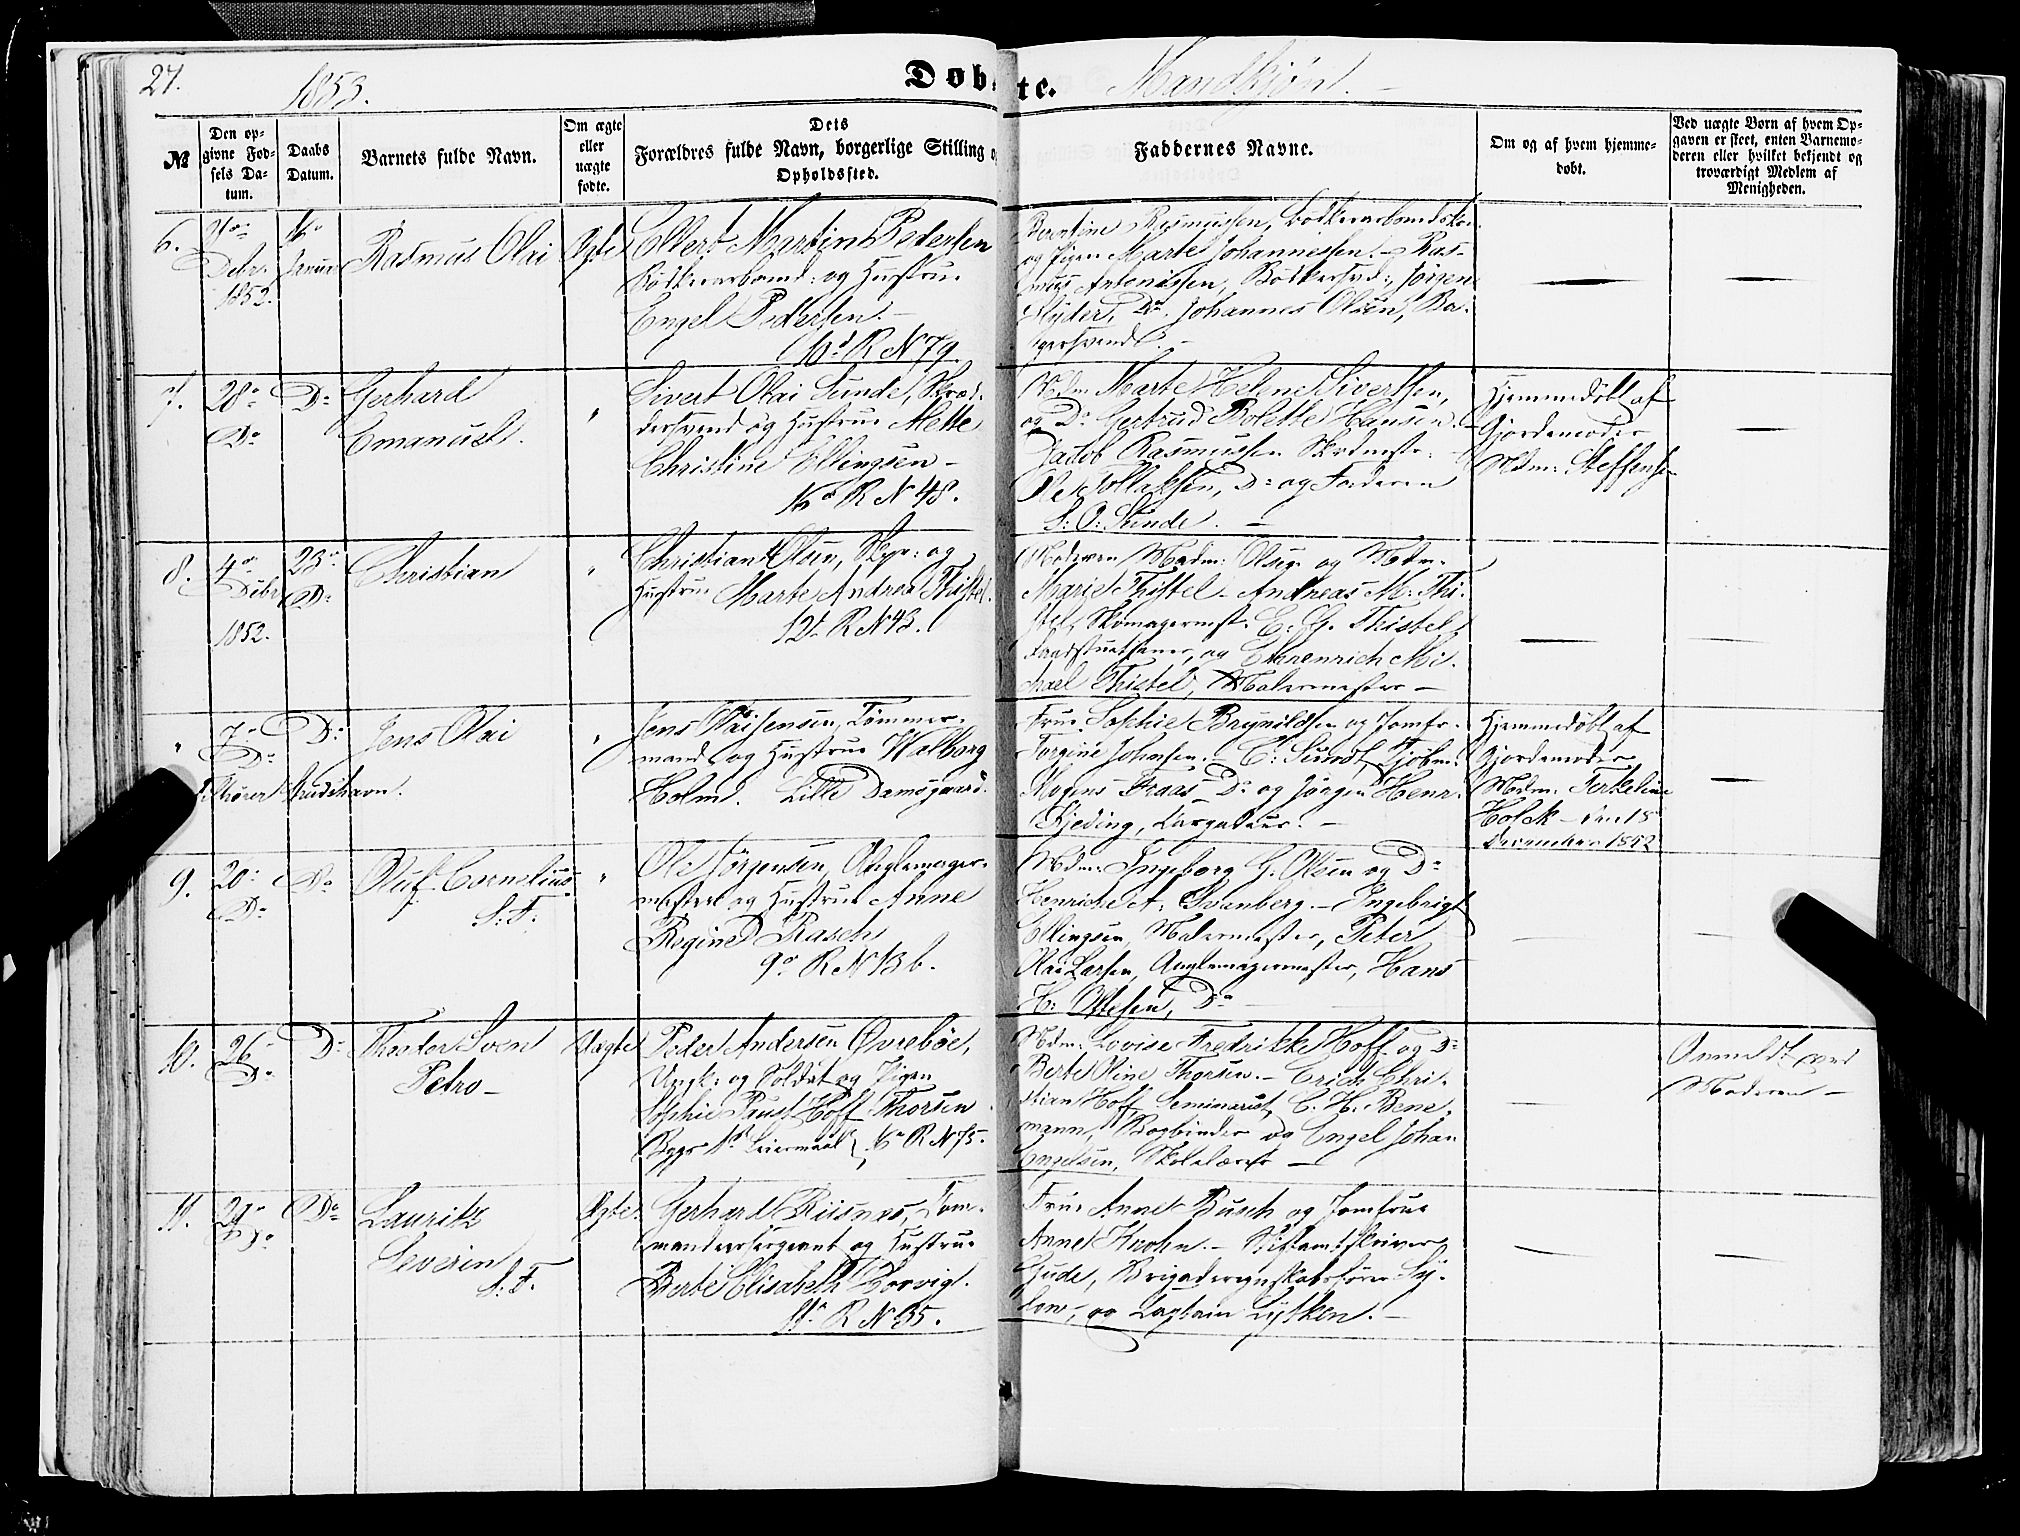 27.
1853.
Døbte.
Mandkjøn.
№
Den op-
givne Fød-
sels Da-
tum.
Daabs
Datum.
Barnets fulde Navn.
Om ægte
eller
uægte
fødte.
Dets
Forældres fulde Navn, borgerlige Stilling og
Opholdssted.
Faddernes Navne.
Om og af hvem hjemme-
døbt.
Ved uægte Børn af hvem Op-
gaven er skeet, enten Barnemo-
deren eller hvilket bekjendt og
troværdigt Medlem af
Menigheden.
6.
Debr
1852.
Januar
Rasmus Olai
Ægte
Ellert Martin Pedersen
Bødkerarbeid: og Hustru
Engel Pedersen.
R N 79
Berentine Rasmussen,
og Pigen Marte Johannessen. - Ras-
mus Antonissen, Bødkersvd:, Jørgen
Do. Johannes Olsen, Ba-
gersvend.
7.
28o
Do
Do
Gerhard
Emanuel.
"
Sivert Olai Sunde, Skræd-
dersvend og Hustru Mette
Christine Ellingsen -
R N 48.
Mdm Marte Helene Sivertsen,
og Do Gertrud Bolette Hansen. -
Jacob Rasmussen
Ole Tollaksen, Do og Faderen
S: O: Sunde. -
Hjemmedøbt af
Gjordemoder
Mdm: Steffensen
8.
4o
Debr
1852.
23o
Do
Christian
"
Christian Olsen, og
Hustru Marte Andrea Thistel.
12o R N 43.
Moderen Madm: Olsen og Madm.
Marie Thistel - Andreas M. Thi-
stel, Skomagermst. E. G. Thistel,
og Ehrenrich Mi-
chael Thistel, Malermester -
"
7o
Do
Do
Jens Olai
"
Jens Olai Jensen, Tømmer-
mand og Hustru Walborg
Holm. Lille Damsgaard.
Frue Sophie Brynildsen og Jomfr.
Torgine Johnsen. - C: Sundt, Kjøbm.
Mogens Do og Jørgen Henr.
Hjemmedøbt af
Gjordemoder
Mdm: Terkeline
Holck - den 18
December 1852
9.
20o
Do
Do
Oluf Cornelius
S: F:
"
Ole Jørgensen, Anglemager-
mester og Hustru Anne
Regine Rasch
9o R N 13 b.
Mdm: Ingeborg G. Olsen og Do
Henriche A. Svanberg. - Ingebrigt
Ellingsen, Malermester, Peter
Olai Larsen, Anglemagermester, Hans
H: Ottesen, Do
10.
26o
Do
Do
Theodor Sven
Petro -
Uægte
Peder Andersen Øvrebøe,
Ungk: og Soldat og Pigen
Sophie Faust Hoff Thorsen
Begges 1st Leiermaal R N 75.
Mdm: Lovise Fredrikke Hoff og Do
Berte Oline Thorsen. - Erich Chri-
stian Hoff, Seminarist, C. H. Bene-
mann, Bogbinder og Engel Johan
Engelsen, Skolelærer -
Anmeldt ved
Moderen -
11.
Do
Do
Lauritz
Severin
S: F.
Ægte.
Gerhard Riisnæs, Com-
mandeersergeant og Hustrue
Berte Elisabeth Borvig.
11o R N 35.
Frue Anne Busch og Jomfrue
Anne Krohn. - Stiftamtskriver
Gude, Brigaderegnskabsfører Sy-
low, og Captain Lytken. -